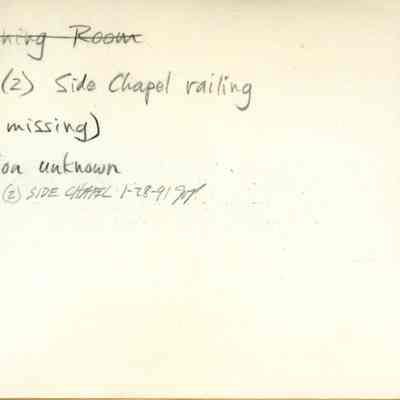 hing Room
(2) Side Chapel railing
missing)
ion unknown
(2) SIDE CHAPEL 1-28-91